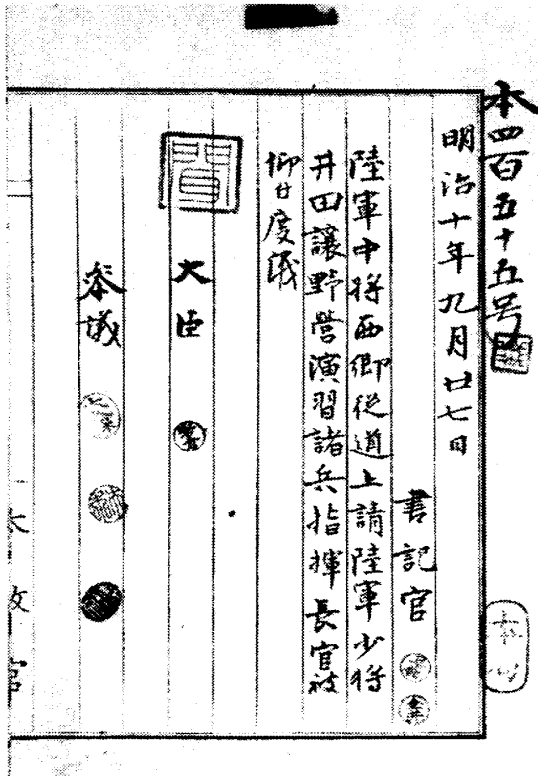 本四百五十五号
明治十年九月廿七日
書記官
陸軍中将西郷従道上請陸軍少将
井田譲野営演習諸兵指揮長官被
仰付度議
大臣
参議